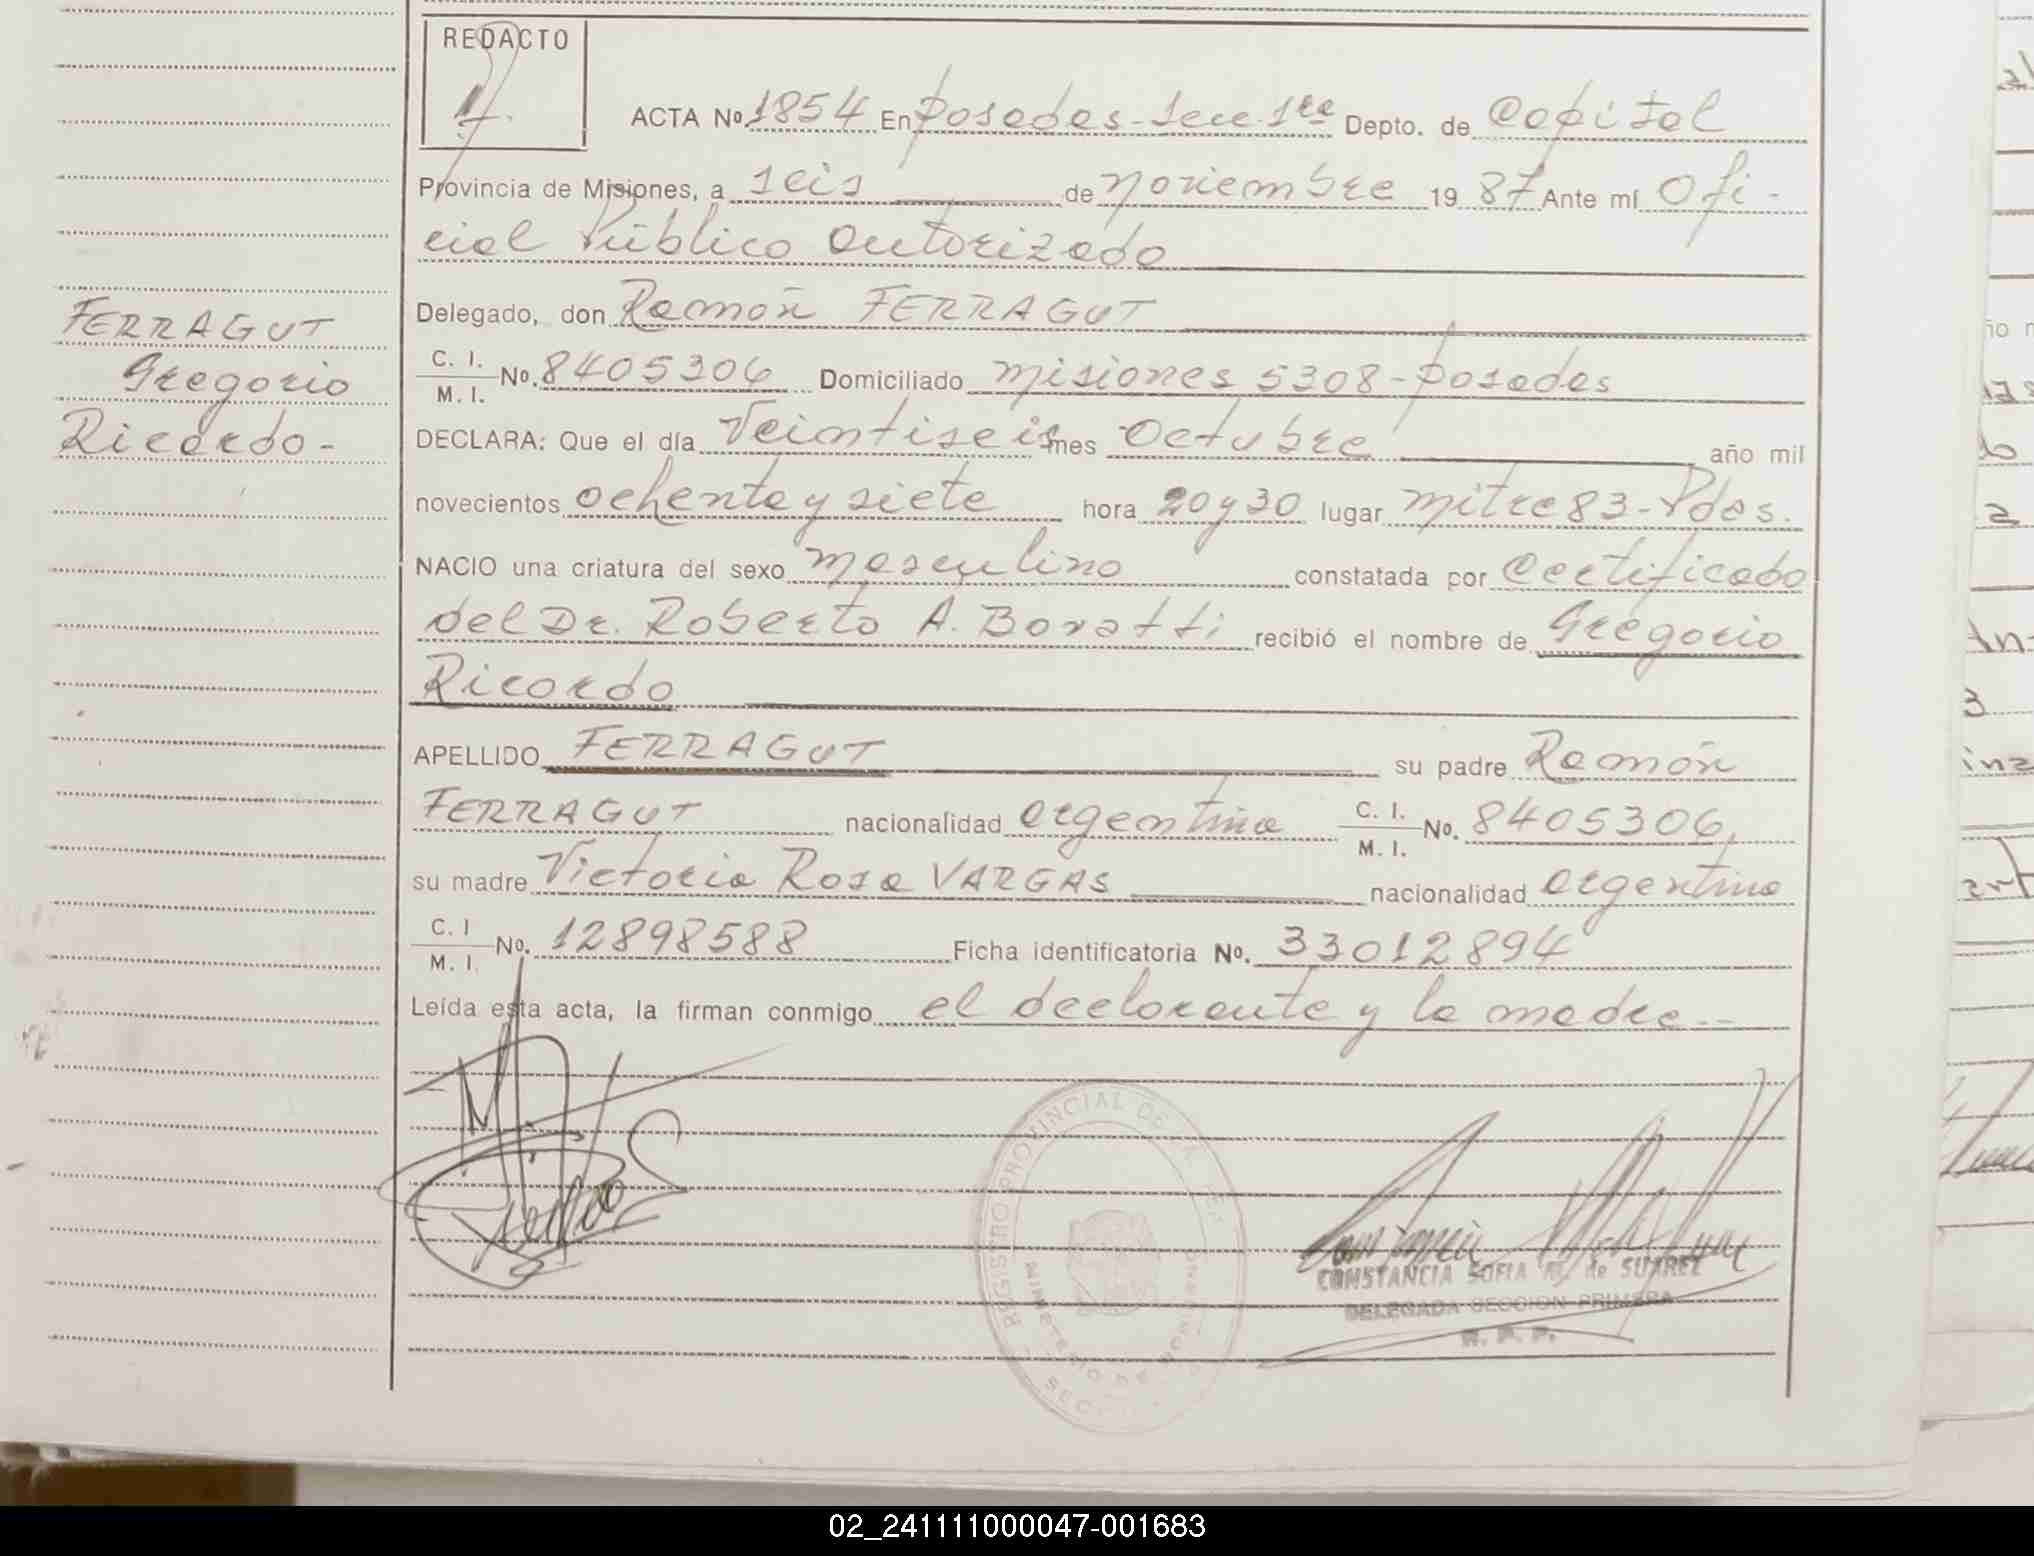 REDACTO
ACTA Nº 1854 En Posadas - Secc. 1ra Depto. de Capital
Provincia de Misiones, a seis de noviembre 19 87 Ante mí Ofi-
cial Público autorizado
Delegado, don Ramón FERRAGUT
C. I.
M. I.
Nº. 8405306 Domiciliado misiones 5308 - Posadas
DECLARA: Que el día Veintiseis mes Octubre año mil
novecientos ochenta y siete hora 20 y 30 lugar mitre 83 - Pdas.
NACIO una criatura del sexo masculino constatada por Certificado
del Dr. Roberto A. Boratti recibió el nombre de Gregorio
Ricardo
APELLIDO FERRAGUT su padre Ramón
FERRAGUT nacionalidad argentina C. I.
M. I.
Nº. 8405306,
su madre Victoria Rosa VARGAS nacionalidad argentina
C. I
M. I.
Nº. 12898588 Ficha identificatoria Nº. 33012894
Leída esta acta, la firman conmigo el declarante y la madre --
FERRAGUT
Gregorio
Ricardo -
REGISTRO PROVINCIAL DE
MINISTERIO DE
CONSTANCIA SOFIA M. de SUAREZ
DELEGADA SECCION PRIMERA
R. P. P.
02_241111000047-001683